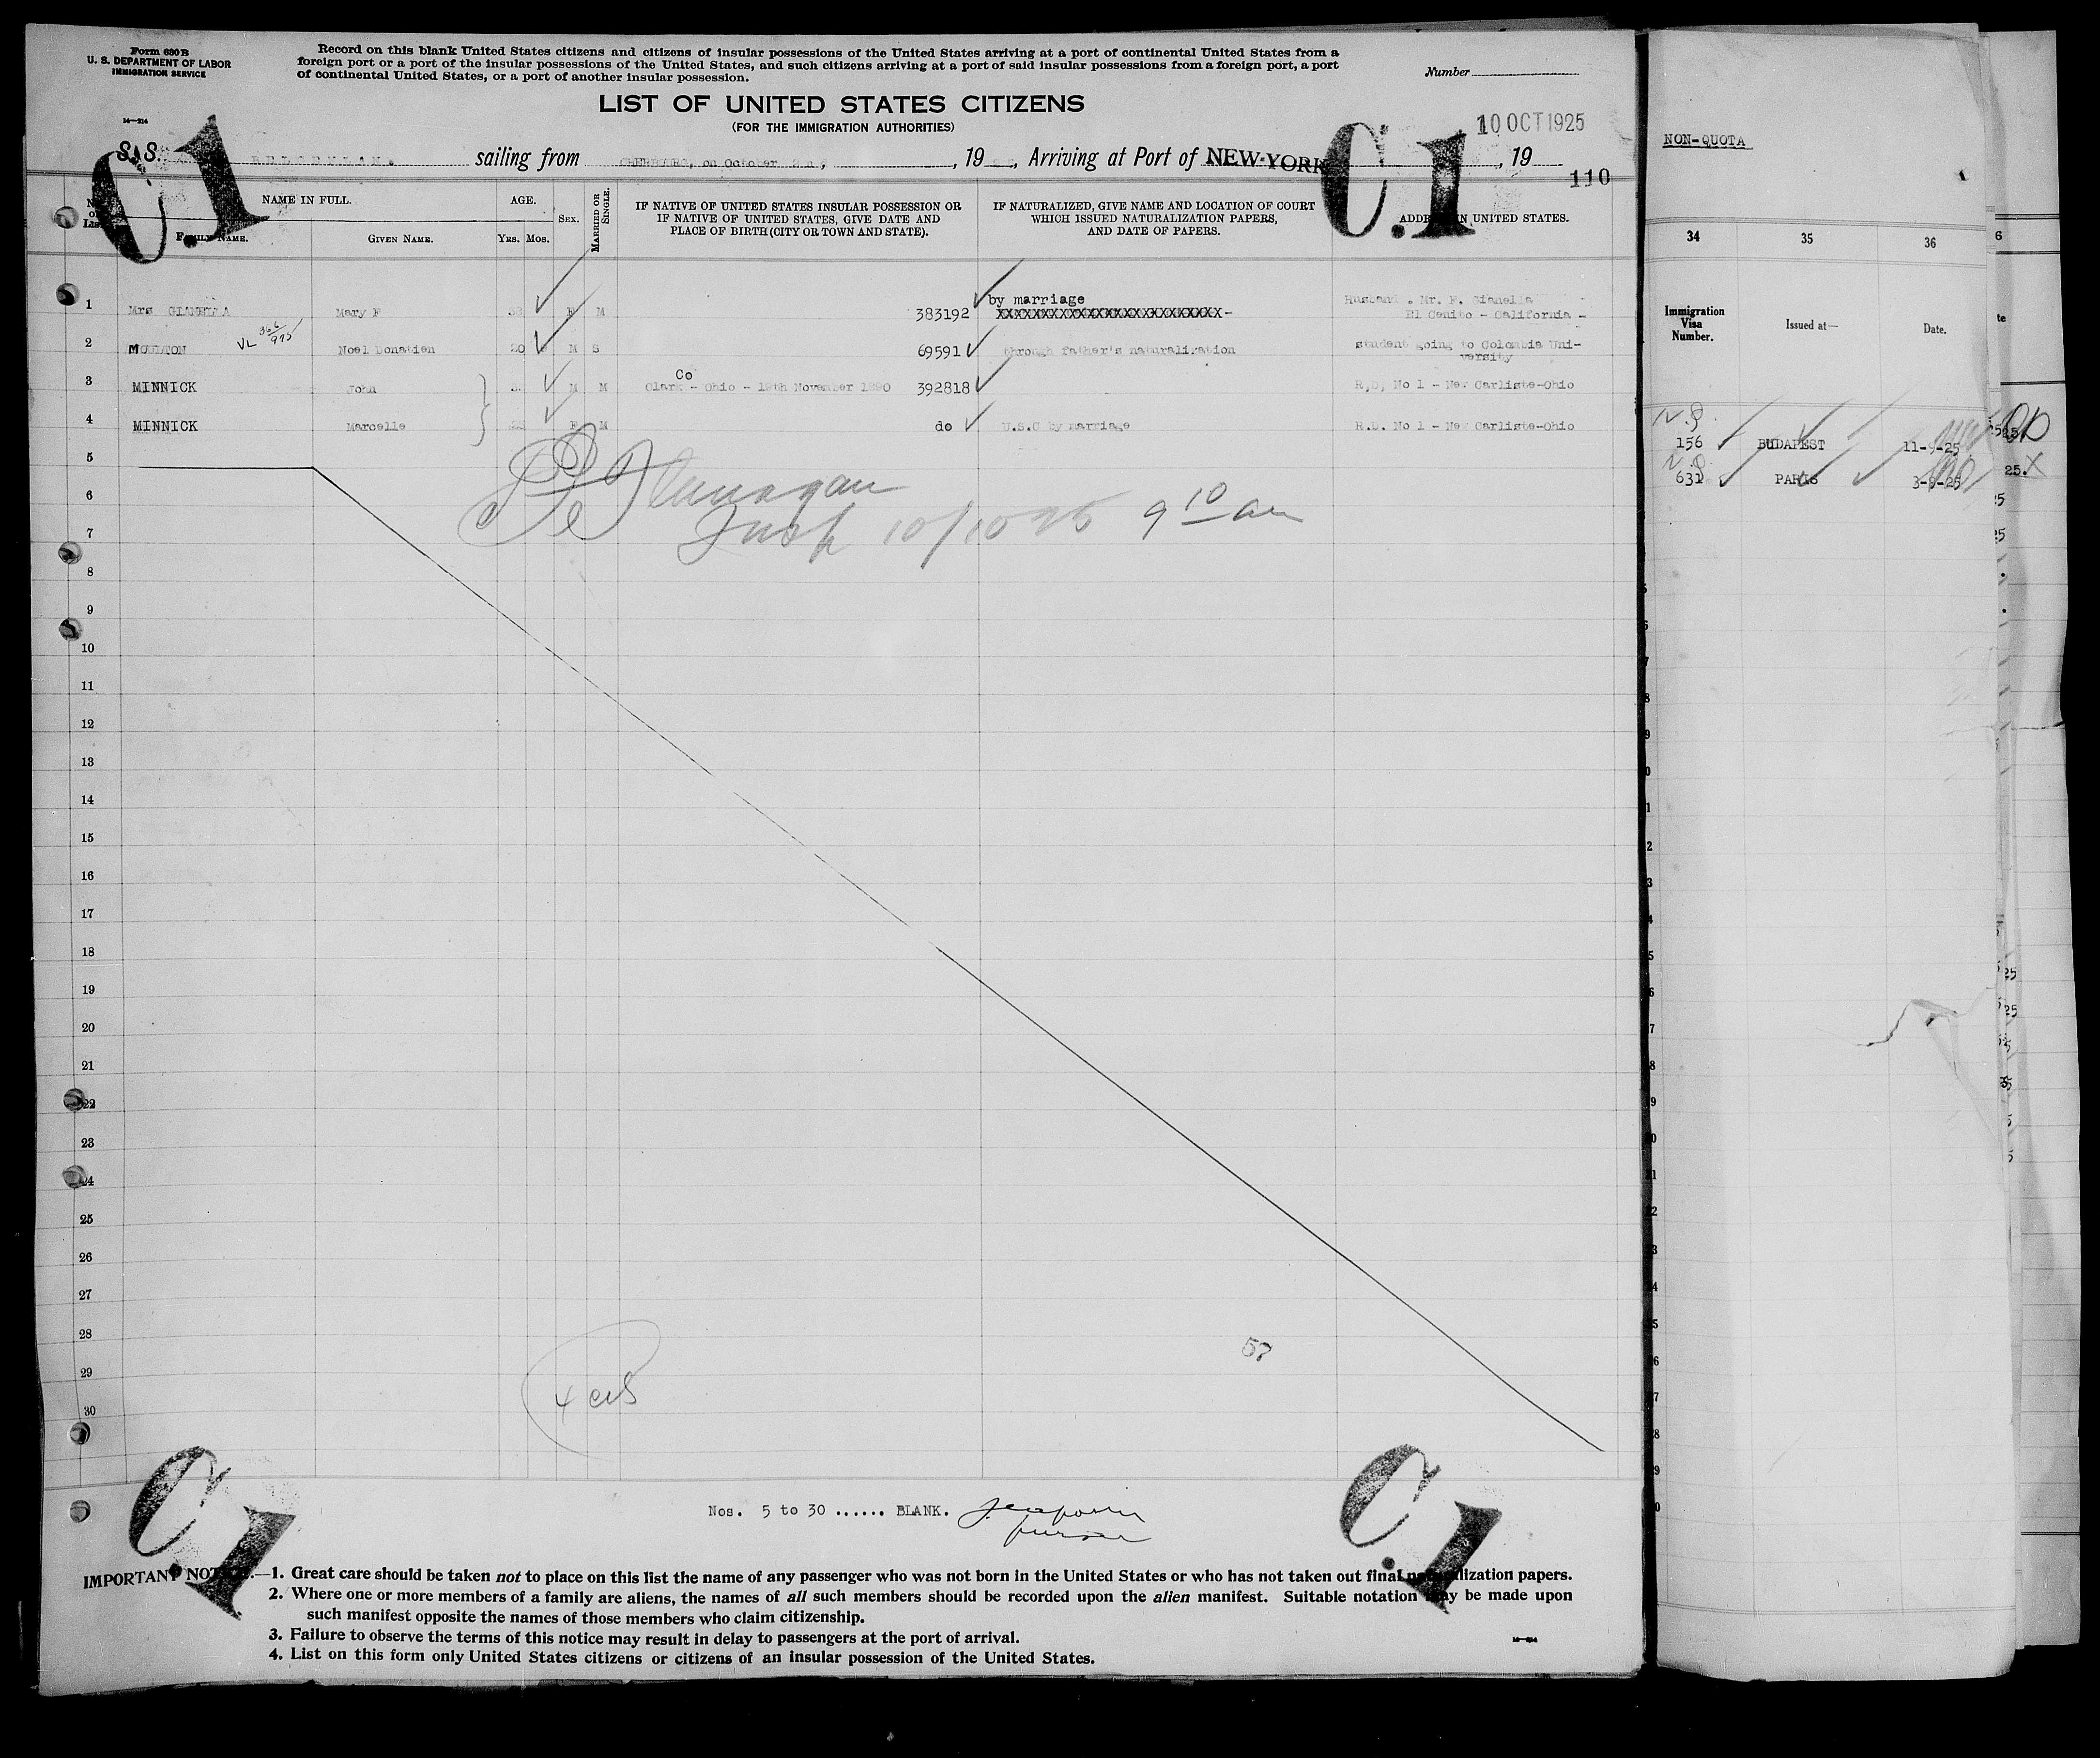 Form 630 B
U. S. DEPARTMENT OF LABOR
IMMIGRATION SERVICE
Record on this blank United States citizens and citizens of insular possessions of the United States arriving at a port of continental United States from a
foreign port or a port of the insular possessions of the United States, and such citizens arriving at a port of said insular possessions from a foreign port, a port
of continental United States, or a port of another insular possession.
Number
LIST OF UNITED STATES CITIZENS
(FOR THE IMMIGRATION AUTHORITIES)
14—214
10 OCT 1925
C.1
C.1
S. S. BELGENLAND. sailing from CHERBOURG, on October 2nd, , 19 , Arriving at Port of NEW-YORK , 19
110
NAME IN FULL.
AGE.
SEX.
MARRIED OR SINGLE.
FAMILY NAME.
GIVEN NAME.
YRS. MOS.
IF NATIVE OF UNITED STATES INSULAR POSSESSION OR
IF NATIVE OF UNITED STATES, GIVE DATE AND
PLACE OF BIRTH (CITY OR TOWN AND STATE).
IF NATURALIZED, GIVE NAME AND LOCATION OF COURT
WHICH ISSUED NATURALIZATION PAPERS,
AND DATE OF PAPERS.
ADDRESS IN UNITED STATES.
by marriage
1 Mrs GIANELLA Mary F F M 383192 XXXXXXXXXXXXXXXXXXXXXXXXX- Husband . Mr. F. Gianella
El Cenito - California -
VL 366/975
2 MOULTON Noel Donatien 20 M S 69591 through father's naturalization student going to Colombia Uni-
versity
Co
3 MINNICK John M M Clark - Ohio - 19th November 1890 392818 R.D. No 1 - New Carliste-Ohio
4 MINNICK Marcelle F M do U.S.C by marriage R.D. No 1 - New Carliste-Ohio
5
6
Flanagan
7
Insp 10/10 25 9 10 am
8
9
10
11
12
13
14
15
16
17
18
19
20
21
22
23
24
25
26
27
28
57
29
4 cuS
30
C.1
C.1
Nos. 5 to 30 ...... BLANK.
purser
IMPORTANT NOTICE.—1. Great care should be taken not to place on this list the name of any passenger who was not born in the United States or who has not taken out final naturalization papers.
2. Where one or more members of a family are aliens, the names of all such members should be recorded upon the alien manifest. Suitable notation may be made upon
such manifest opposite the names of those members who claim citizenship.
3. Failure to observe the terms of this notice may result in delay to passengers at the port of arrival.
4. List on this form only United States citizens or citizens of an insular possession of the United States.
NON-QUOTA
34 35 36
Immigration
Visa
Number.
Issued at—
Date.
N.Q.
156 BUDAPEST 11-9-25
N.Q.
631 PARIS 3-9-25